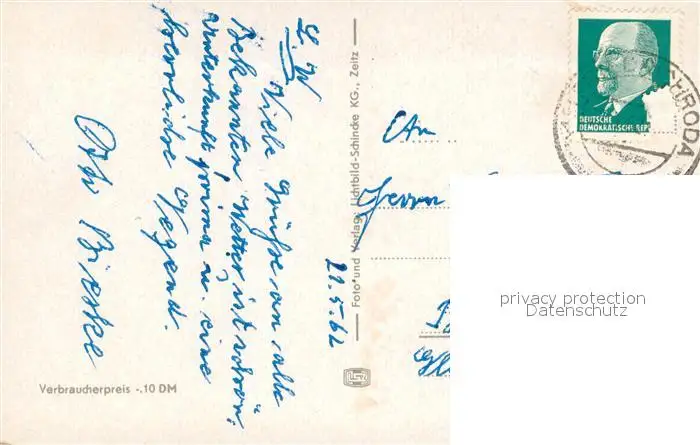 L. W
Viele Grüße an alle
Bekannten, Wetter ist schön,
Unterkunft prima u. eine
herrliche Gegend.
Otto
21.5.62
Foto und Verlag: Lichtbild-Schincke KG., Zeitz
Verbraucherpreis -.10 DM
DEUTSCHE
DEMOKRATISCHE REP
SCHRODA
An
Herrn
privacy protection
Datenschutz